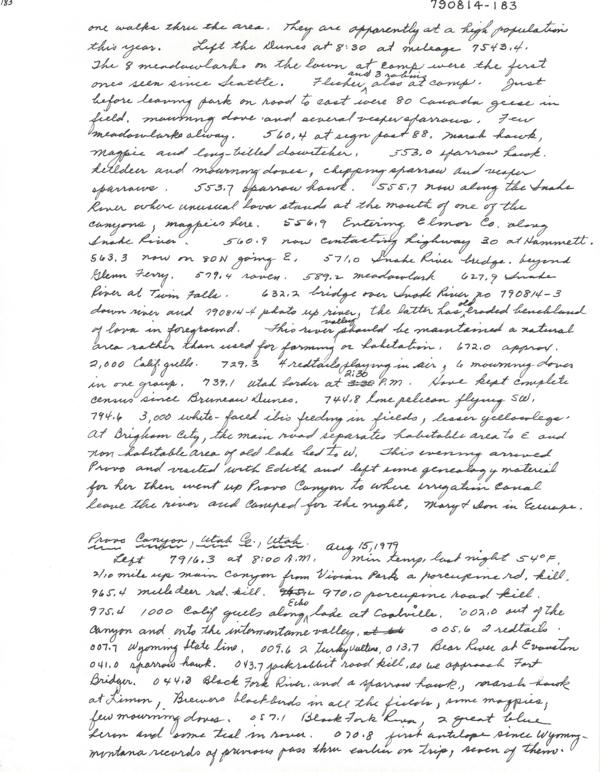 183
790814-183
one walks thru the area. They are apparently at a high population
this year. Left the Dunes at 8:30 at mileage 7543.4.
The 8 meadowlarks on the lawn at camp were the first
ones seen since Seattle. Flicker and 3 robins also at camp. Just
before leaving park on road to east were 80 Canada geese in
field, mourning dove and several vesper sparrows. Few
meadowlarks alway. 560.4 at sign post 88. marsh hawk,
magpie and long-billed dowitcher. 553.0 sparrow hawk.
killdeer and mourning doves, chipping sparrow and vesper
sparrows. 553.7 sparrow hawk. 555.7 now along the Snake
River where unusual lava stands at the mouth of one of the
canyons, magpies here. 556.9 Entering Elmor Co. along
Snake River. 560.9 now contacting highway 30 at Hammett.
563.3 now on 80N going E. 571.0 Snake River bridge. beyond
Glenn Ferry. 579.4 raven. 589.2 meadowlark 627.9 Snake
River at Twin Falls. 632.2 bridge over Snake River, no 790814-3
down river and 790814-4 photo up river, the latter has old eroded benchland
of lava in foreground. This river valley should be maintained a natural
area rather than used for farming or habitation. 672.0 approx.
2,000 Calif gulls. 729.3 4 redtails playing in air, 6 mourning doves
in one group. 739.1 Utah border at 2:30 P.M. Have kept complete
census since Bruneau Dunes. 744.8 lone pelican flying SW.
794.6 3,000 white-faced ibis feeding in fields, lesser yellowlegs.
At Brigham City, the main road separates habitable area to E and
non habitable area of old lake bed to W. This evening arrived
Provo and visited with Edith and left some genealogy material
for her then went up Provo Canyon to where irrigation canal
leave the river and camped for the night, Mary & Don in Escape.
Provo Canyon, Utah Co., Utah. Aug 15, 1979
Left 7916.3 at 8:00 A.M. min temp. last night 54°F.
2/10 mile up main canyon from Vivian Park a porcupine rd. kill.
965.4 mule deer rd. kill. 970.0 porcupine road kill.
975.4 1000 Calif gulls along Echo lake at Coalville. 002.0 out of the
canyon and onto the intermontane valley, 005.6 2 redtails.
007.7 Wyoming State line, 009.6 2 turkey vultures, 013.7 Bear River at Evanston
041.0 sparrow hawk. 043.7 jackrabbit road kill, as we approach Fort
Bridger. 044.3 Black Fork River and a sparrow hawk, marsh hawk
at Liman, Brewers blackbirds in all the fields, some magpies,
few mourning doves. 057.1 Black Fork River, 2 great blue
heron and some teal in river. 070.8 first antelope since Wyoming-
montana records of previous pass thru earlier on trip, seven of them.